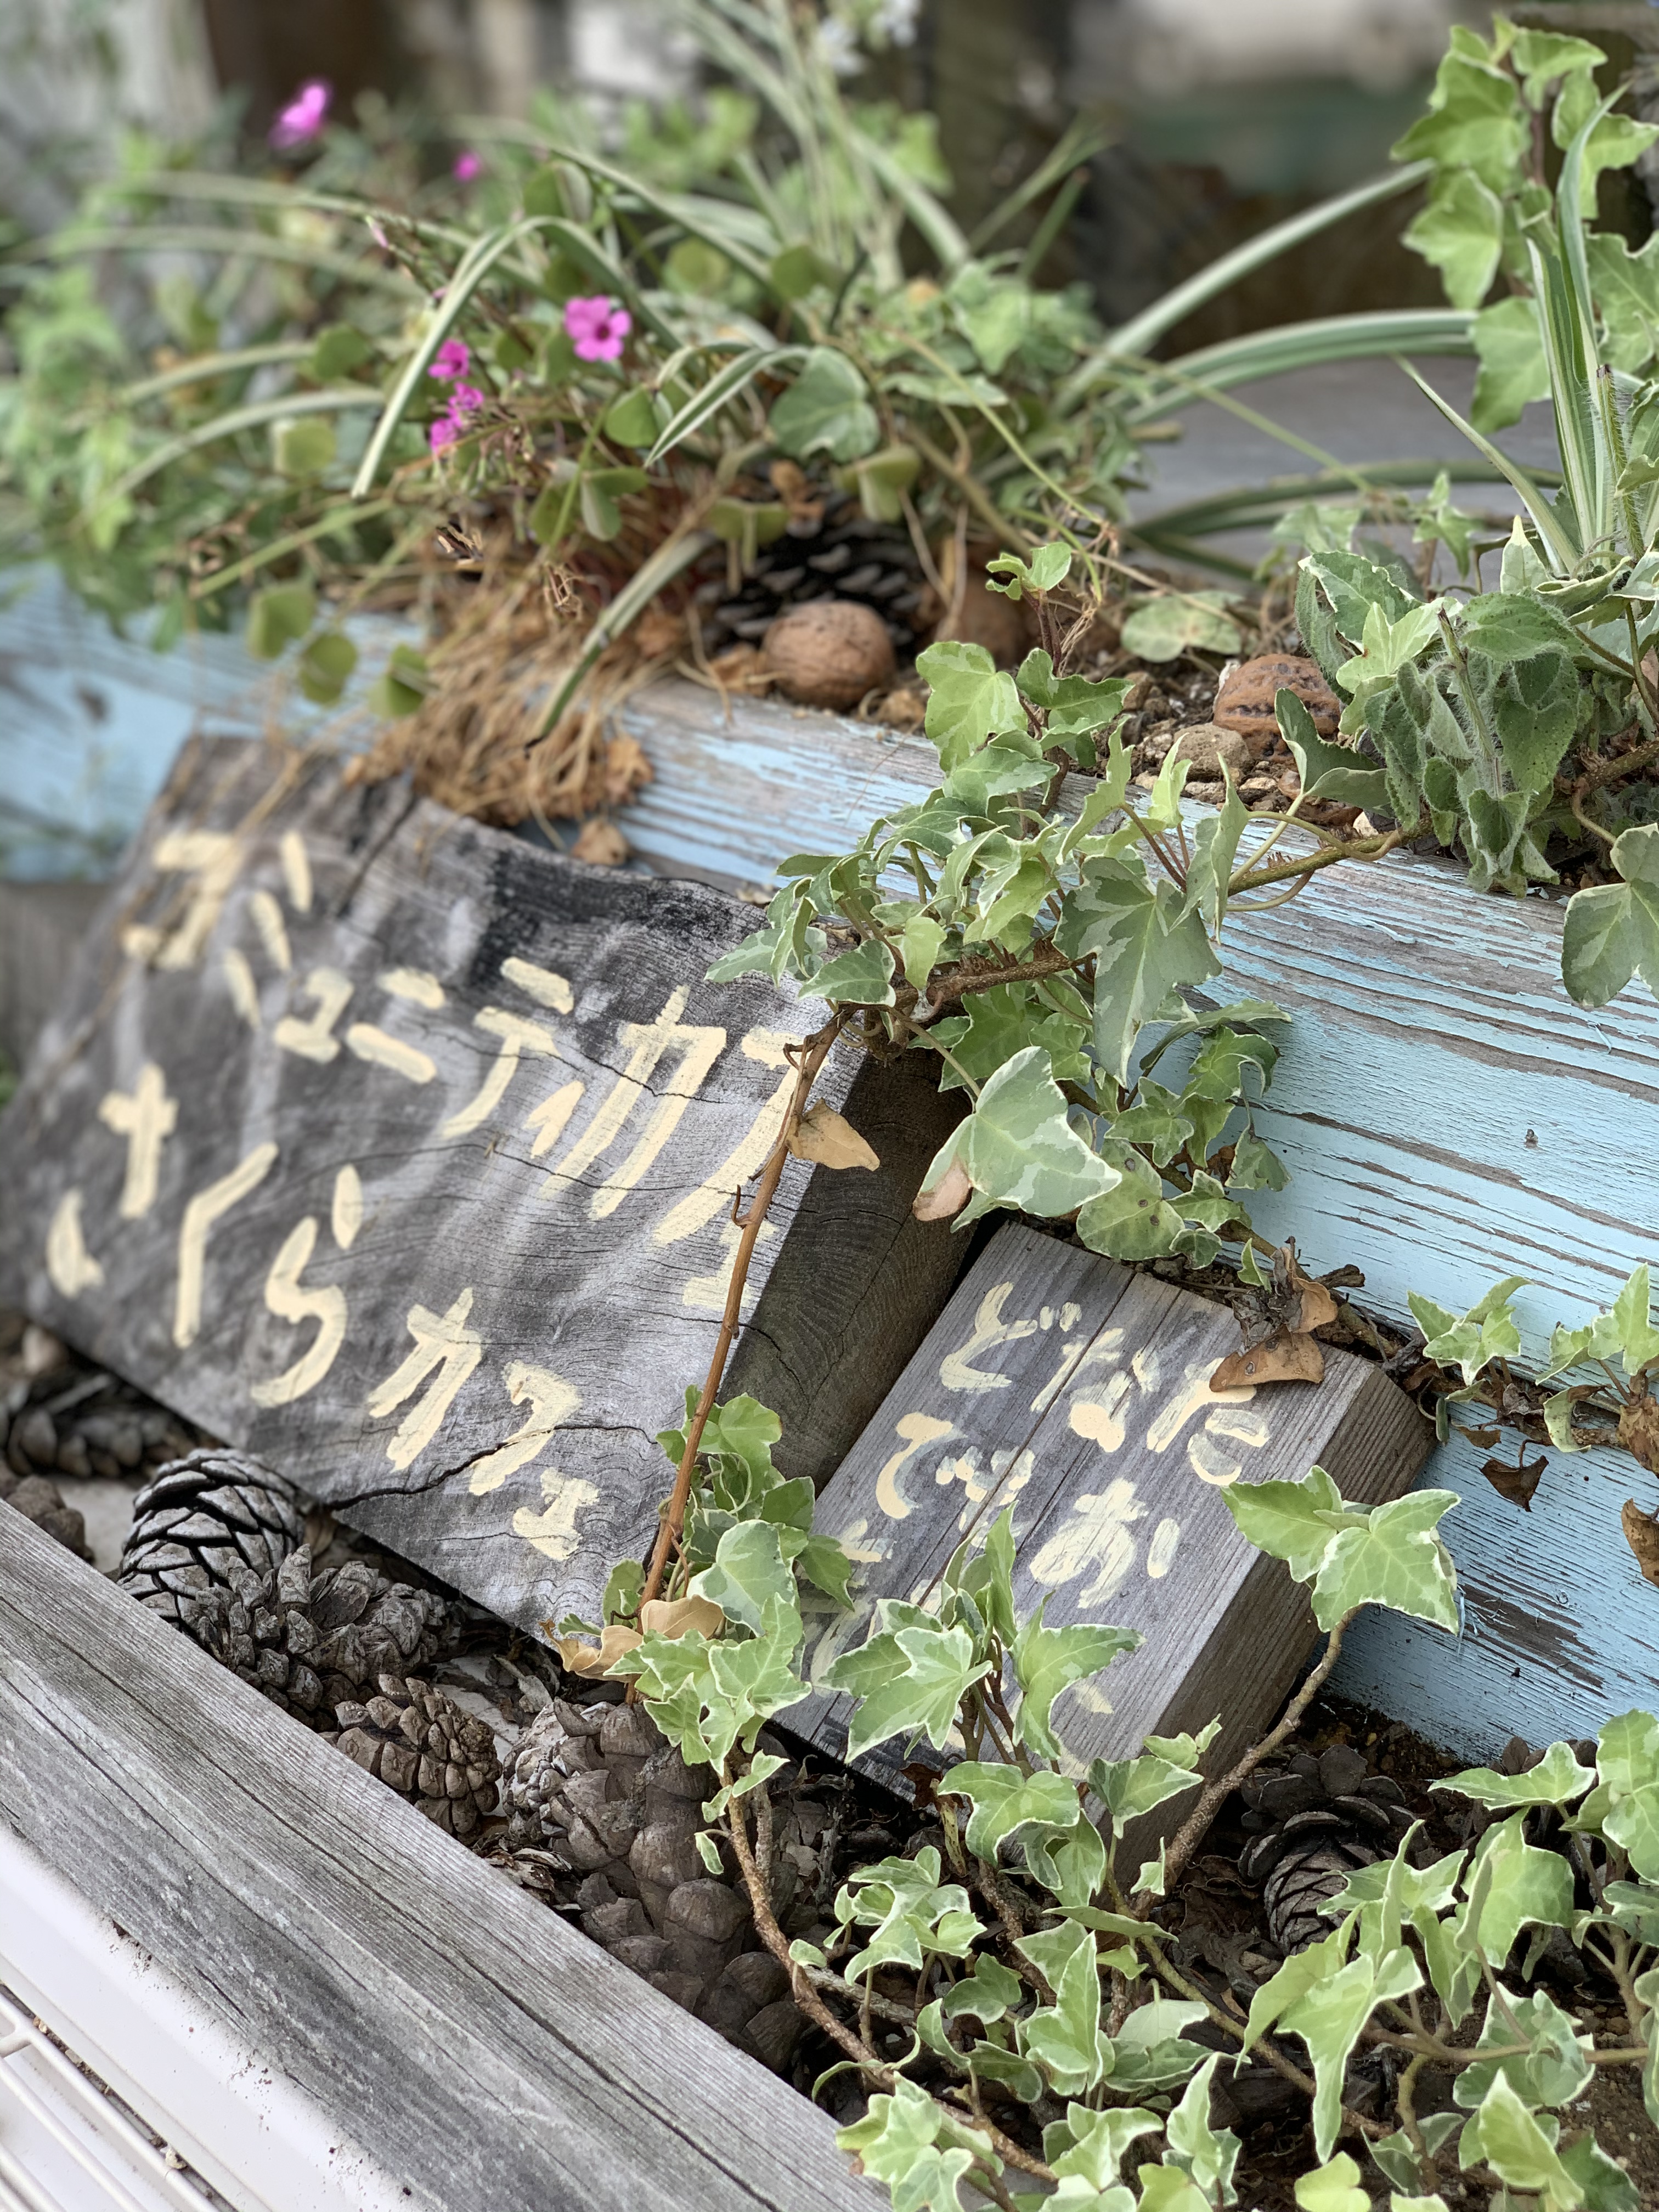 コミュニティカフェ
さくらカフェ
どなた
でもお